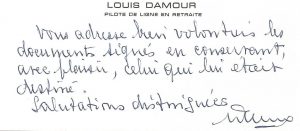 LOUIS DAMOUR
PILOTE DE LIGNE EN RETRAITE
Vous adresse bien volontiers les
documents signés en conservant,
avec plaisir, celui qui lui était
destiné.
Salutations distinguées